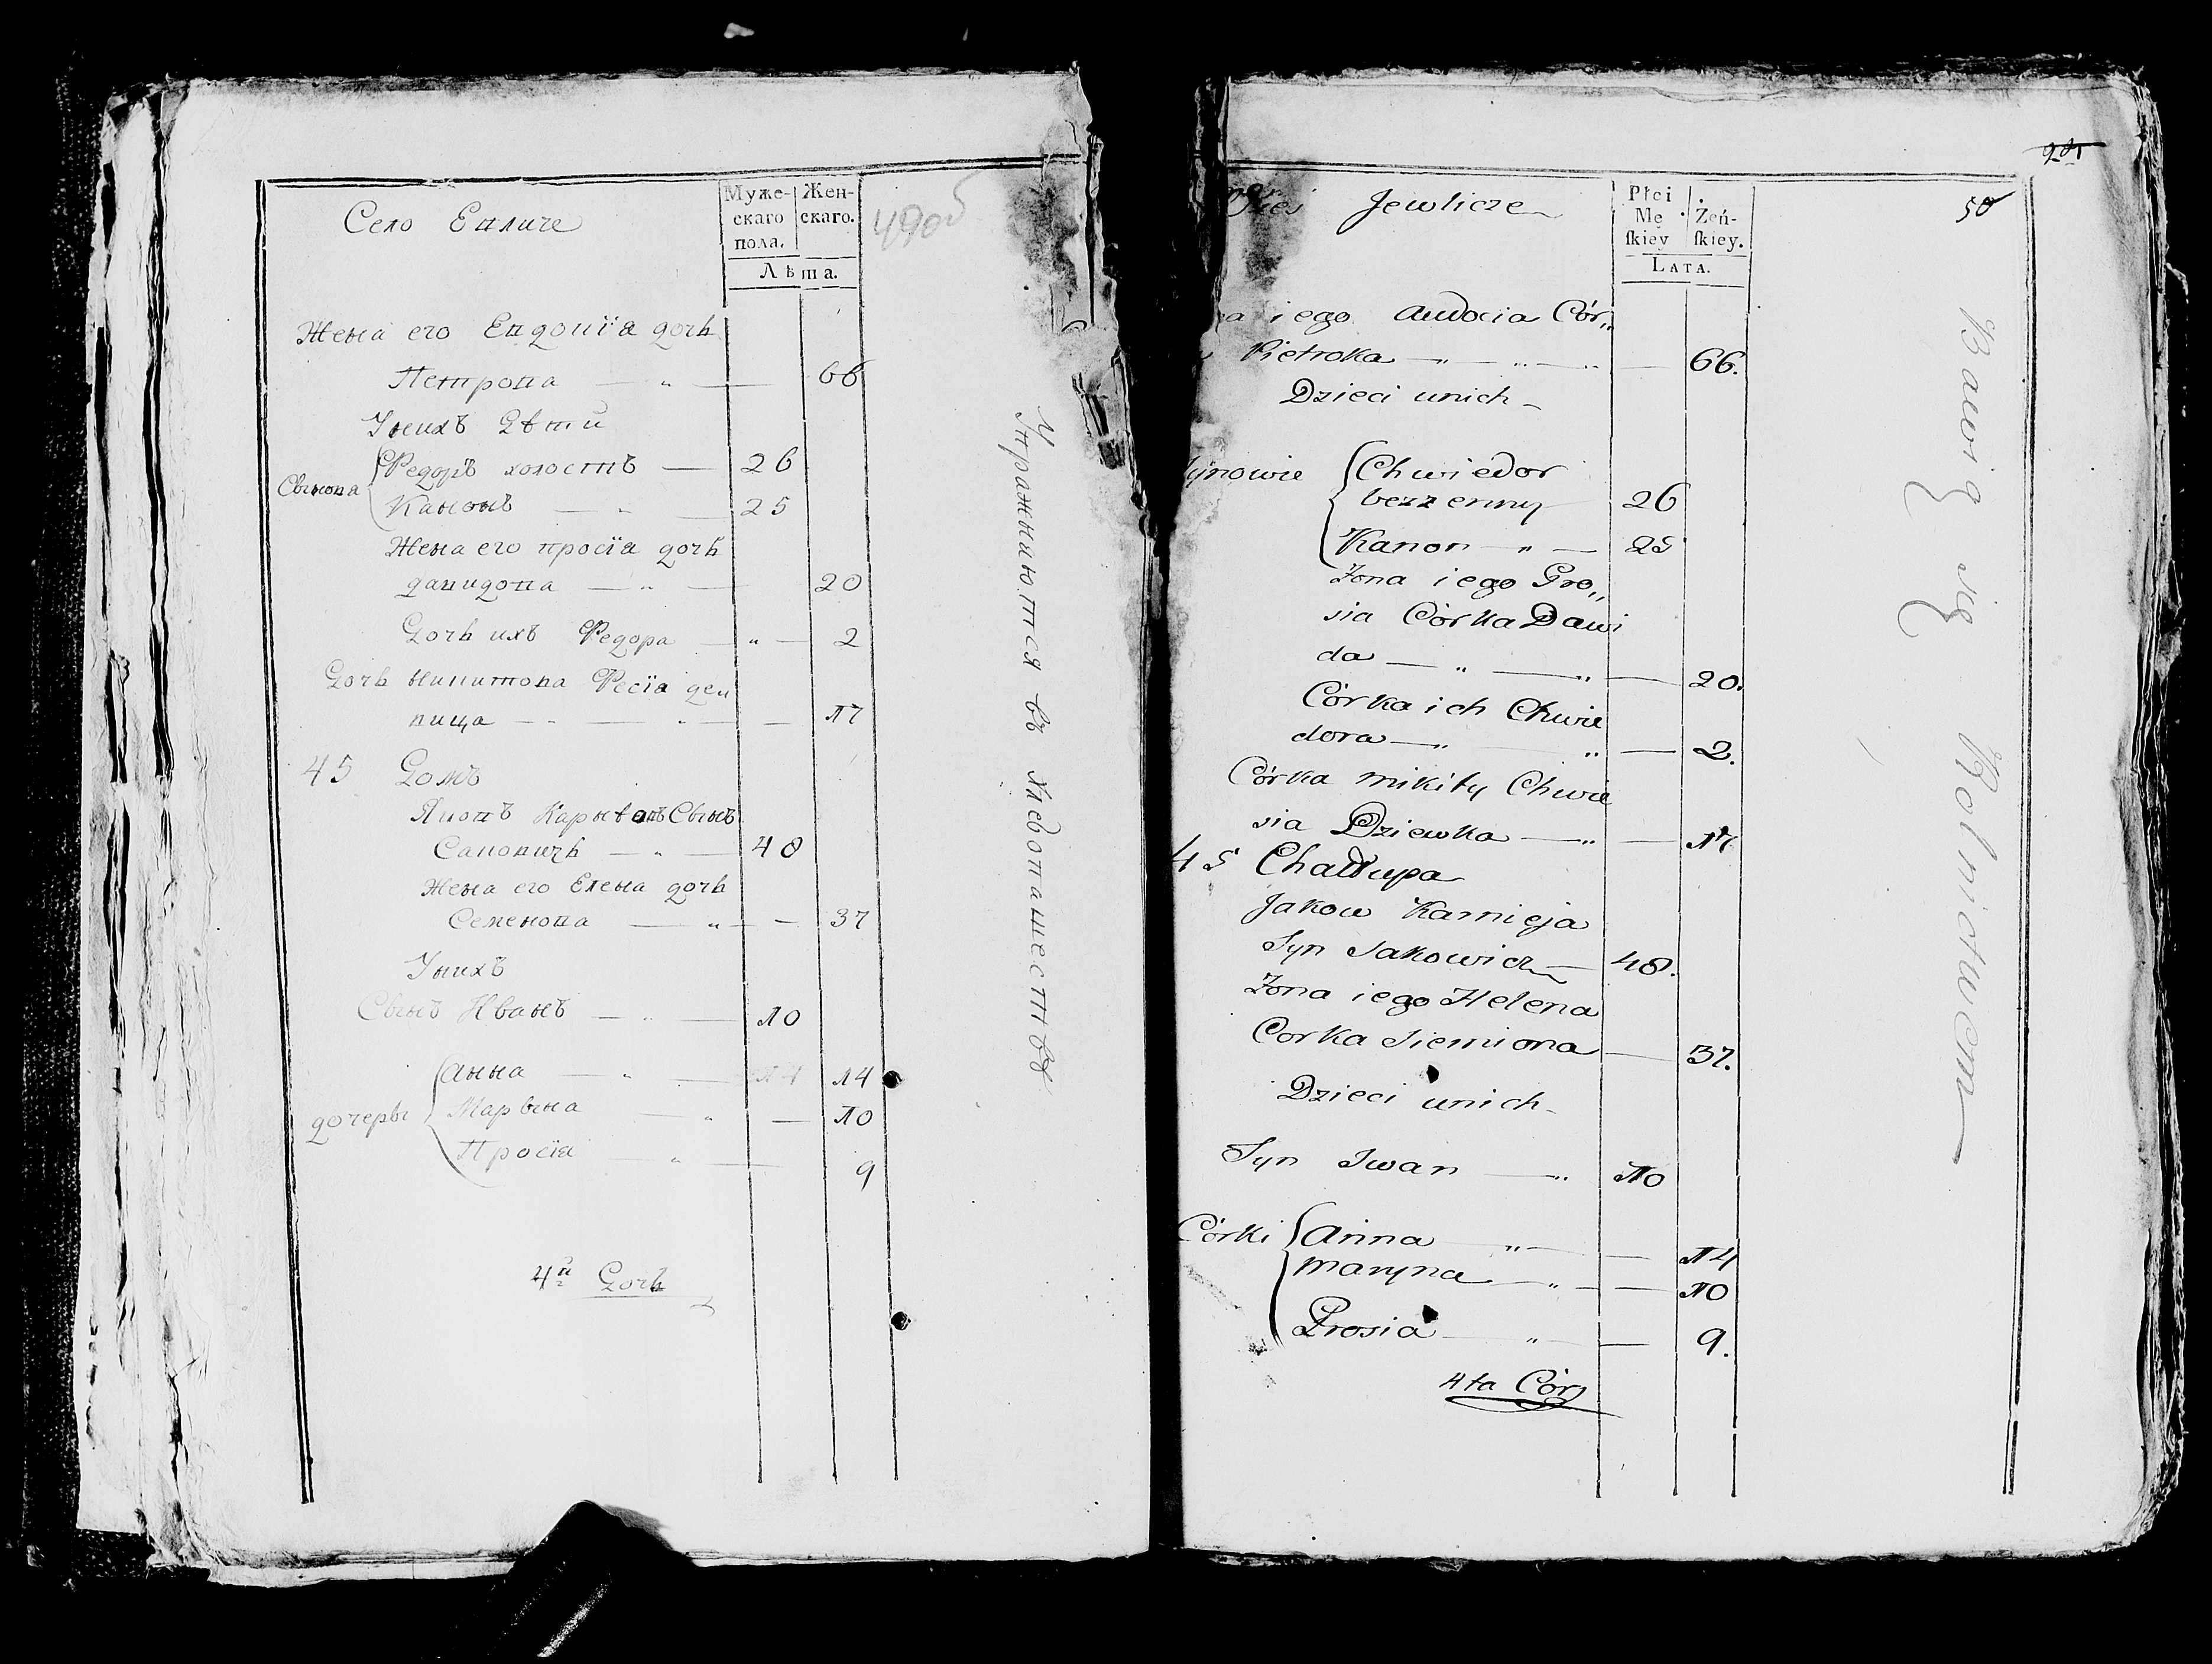 Село Евличе
Муже-
скаго
пола.
Жен-
скаго.
Лѣта.
49об
Жена его Евдокія дочь
Петрока — „ — 66
Унихъ Дѣти
Сынова
Федоръ холостъ — 26
Канонъ — „ — 25
Жена его просія дочь
давидова — „ — 20
Дочь ихъ Федора — „ — 2
Дочь никитова Фесіа дев
кица — „ — „ — 17
45 Домъ
Яковъ Карнѣевъ Сынъ
Саковичъ — „ — 48
Жена его Елена дочь
Семенова — „ — 37
Унихъ
Сынъ Иванъ — „ — 10
дочеры
Анна — „ — 14
Марына — „ — 10
Просія — „ — 9
4я Дочь
Упражнились въ хлебопашествѣ
Wieś Jewlicze
Płci
Mę
skiey
Żeń-
skiey.
LATA.
201
50
iego Audocia Cór„
Pietroka — „ — „ — 66.
Dzieci unich
Synowie
Chwiedor
bezzenny 26
Kanon — „ — 25
Żona iego Pro„
sia Córka Dawi
da — „ — „ — 20.
Córka ich Chwie
dora — „ — „ — 2.
Córka mikity Chwie
sia Dziewka — „ — 17
45 Chałupa
Jakow Karnieja
Syn Sakowicz — 48.
Żona iego Helena
Corka Siemiona — 37.
Dzieci unich
Syn Iwan — „ 10
Córki
Anna „ — 14
Maryna — „ — 10
Prosia — „ — 9.
4ta Cór
Bawią się Rolnictwem